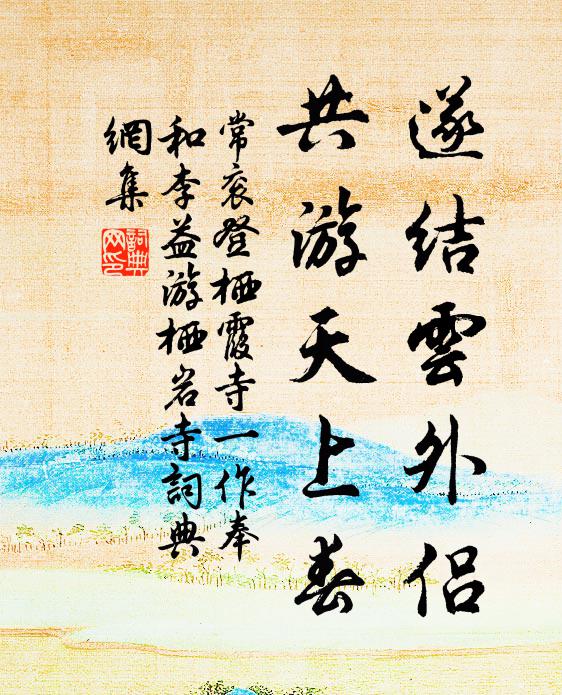 遂結雲外侶
共游天上春
常袞登栖霞寺一作奉
和李益游栖岩寺詞典
網集
詞典網印